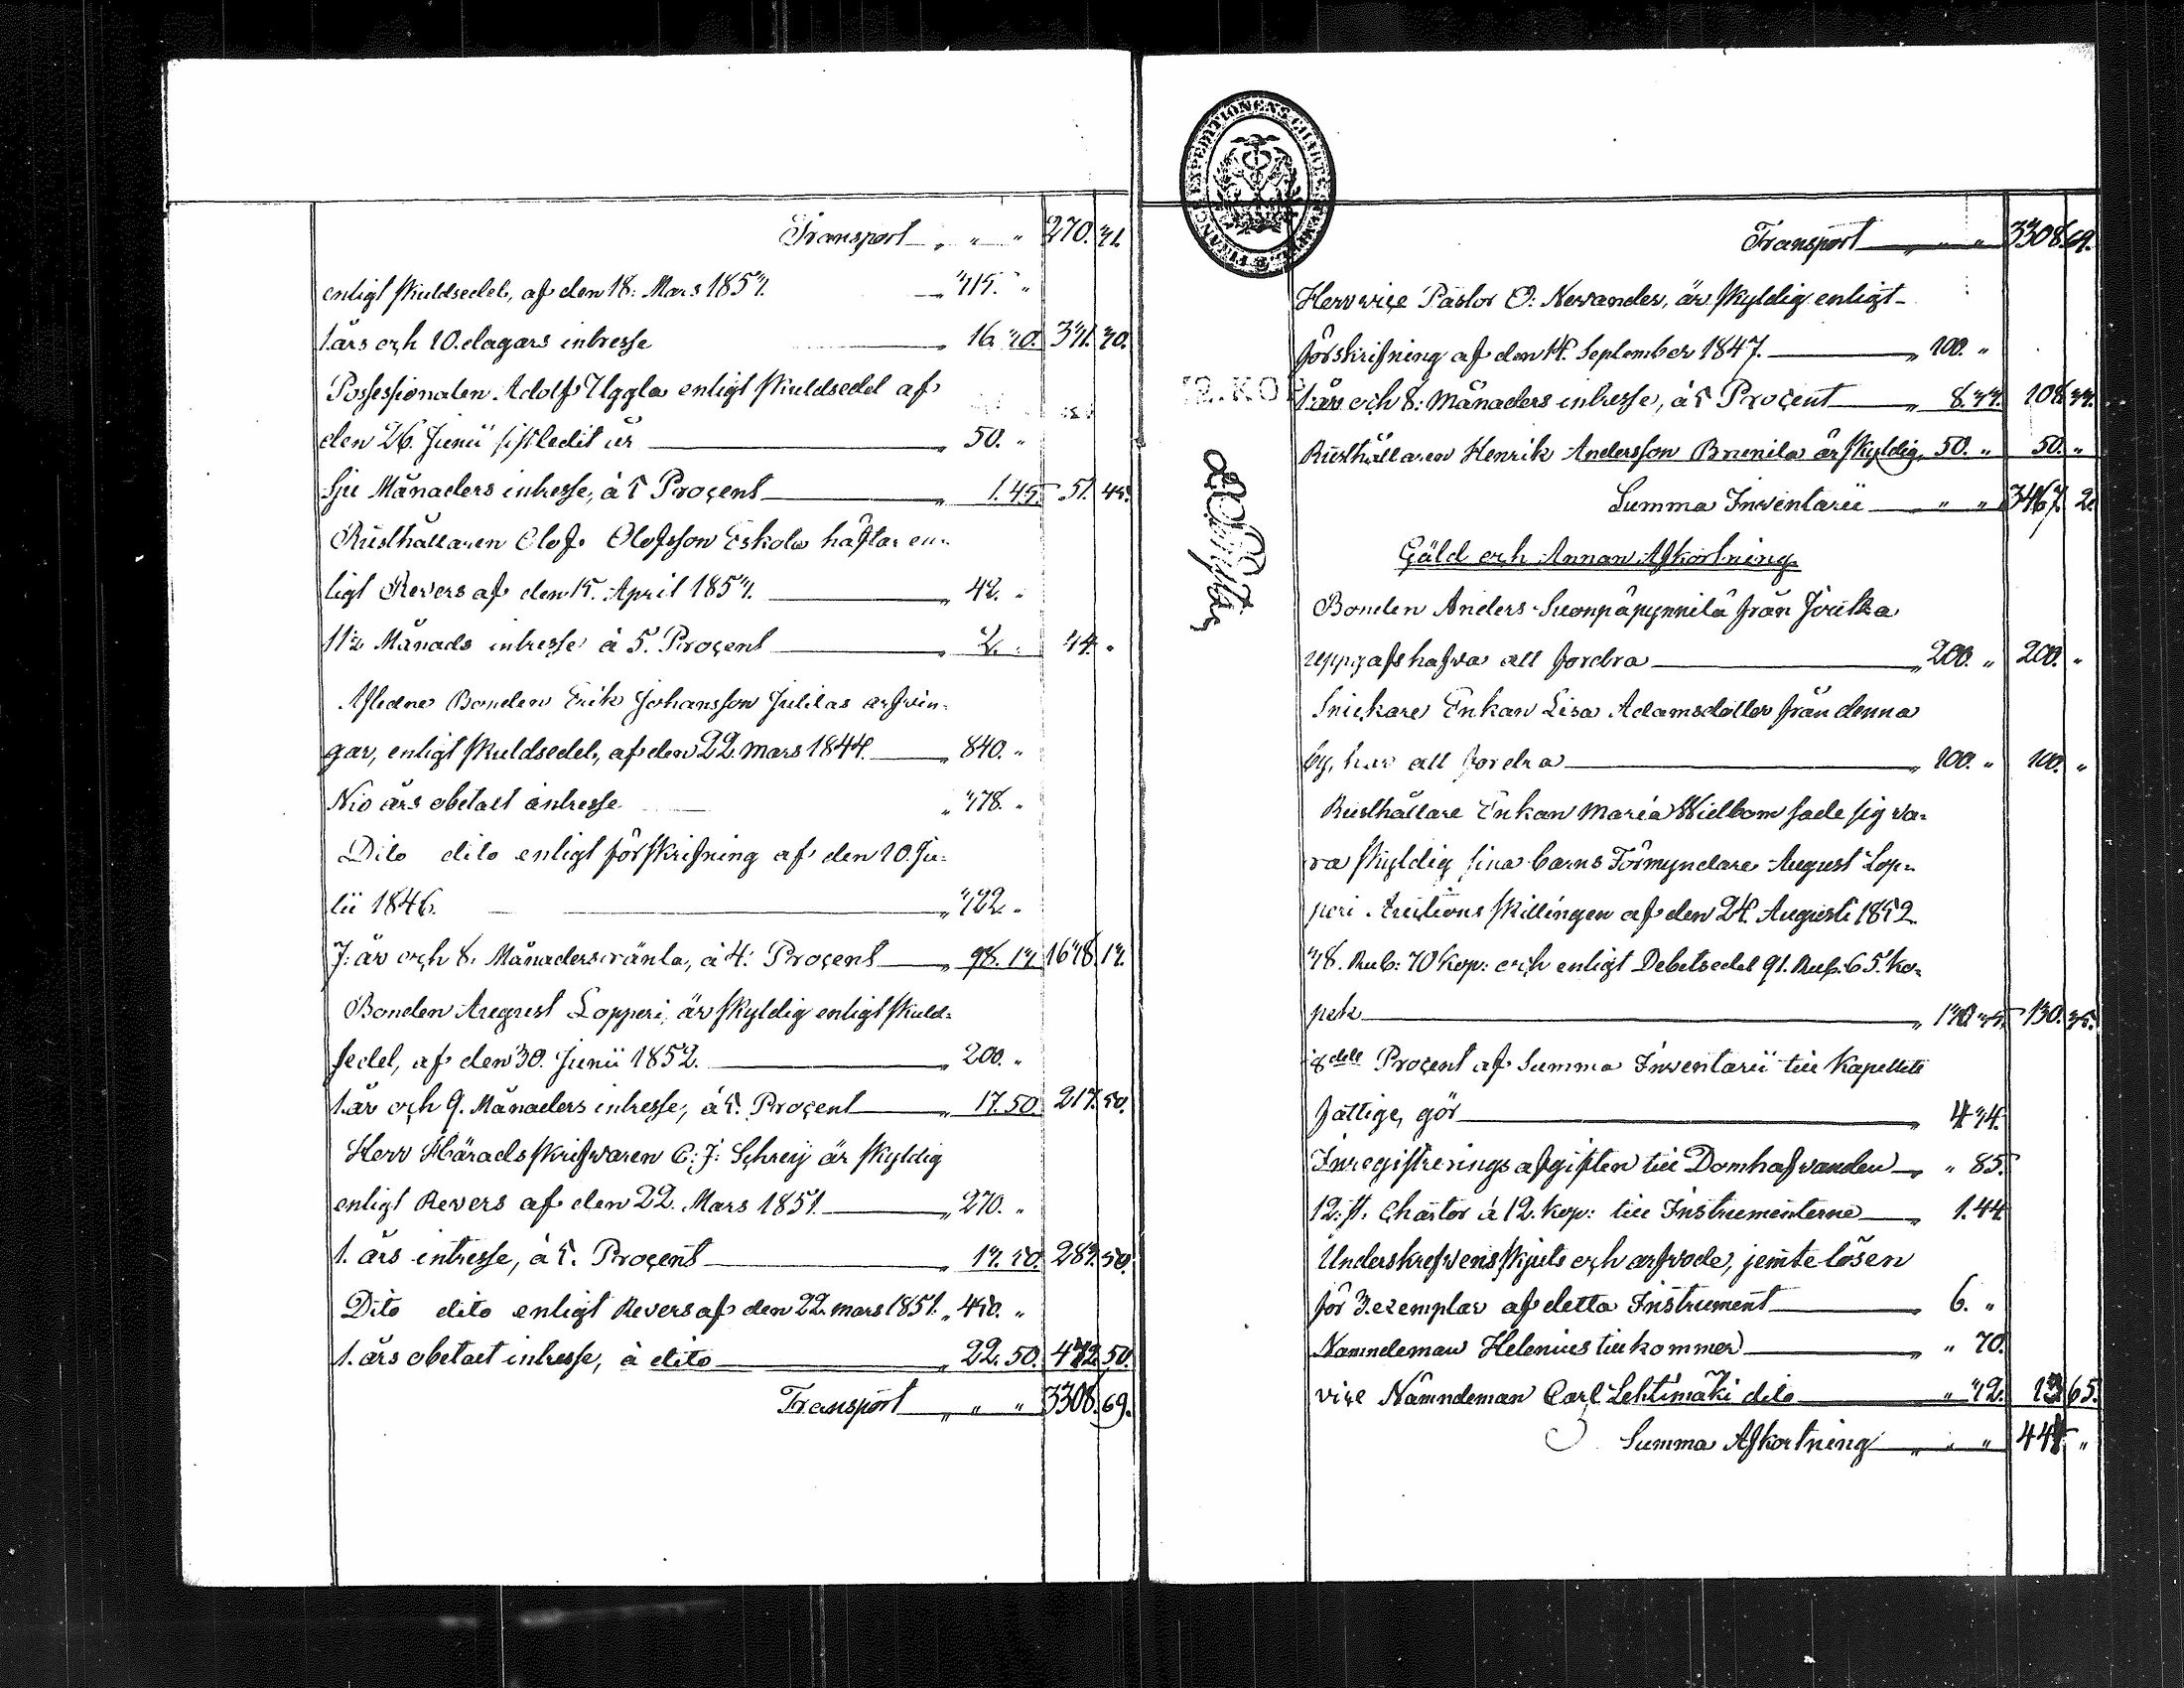 Transport „ „ „ 270. 31.
enligt skuldsedel, af den 18. Mars 1853. „ 315. „
1. års och 20. dagars intresse „ 16. 20. 331. 20.
Possessionaten Adolf Uggla enligt skuldsedel af
den 26. Junii sistledit år „ 50. „
Sju Månaders intresse, à 5 Proçent „ 1. 45. 51. 45.
Rusthållaren Olof Olofsson Eskola häftar en-
ligt Revers af den 15. April 1853. „ 42. „
11½ Månads intresse à 5. Proçent „ 2. „ 44. „
Afledne Bonden Erik Johansson Julilas arfvin-
gar, enligt skuldsedel, af den 22. Mars 1844. „ 840. „
Nio års obetalt intresse „ 378. „
Dito dito enligt förskrifning af den 20. Ju-
lii 1846. „ 322. „
7. år och 8. Månaders ränta, à 4. Proçent „ 98. 13. 1638. 13.
Bonden August Lopperi, är skyldig enligt skuld-
sedel, af den 30. Junii 1852. „ 200. „
1. år och 9. Månaders intresse, à 5. Proçent „ 17. 50. 217. 50.
Herr Häradsskrifvaren C: J: Schreij är skyldig
enligt Revers af den 22. Mars 1851. „ 270. „
1. års intresse, à 5. Proçent „ 13. 50. 283. 50.
Dito dito enligt Revers af den 22. Mars 1851. „ 450. „
1. års obetalt intresse, à dito „ 22. 50. 472. 50.
Transport „ „ „ 3308. 69.
Transport „ „ „ 3308. 69.
Herr viçe Pastor O: Nervander, är skyldig enligt
förskrifning af den 14. September 1847. „ 100. „
12. KOP
1. år och 8. Månaders intresse, à 5 Proçent „ 8. 33. 108. 33.
Rusthållaren Henrik Andersson Brunila är skyldig, 50. „ 50. „
Summa Inventarii „ „ 3467. 2.
Gäld och Annan Afkortning
Bonden Anders Suonpäpynnilä från Jouttka
uppgafs hafva att fordra „ 200. „ 200. „
Snickare Enkan Lisa Adamsdotter från denna
by, har att fordra „ 100. „ 100. „
Rusthållare Enkan Maria Widbom sade sig va-
ra skyldig sina barns Förmyndare August Lop-
peri Auctions skillingen af den 24. Augusti 1852.
38. Rub: 70 kop: och enligt Debetsedel 91. Rub. 65. ko-
pek „ 130. 35. 130. 35.
⅛ dels Proçent af Summa Inventarii till Kapellets
fattige, gör „ 4. 34.
Inregistrerings afgiften till Domhafvanden „ „ 85.
12. st. Chartor à 12. kop: till Instrumenterne „ 1. 44.
Underskrefvens skjuts och arfvode, jemte lösen
för 3. exemplar af detta Instrument „ 6. „
Nämndeman Helenius tillkommer „ „ 70.
viçe Nämndeman Carl Lehtimäki dito „ 32. 13. 65.
Summa Afkortning „ „ „ 444. „